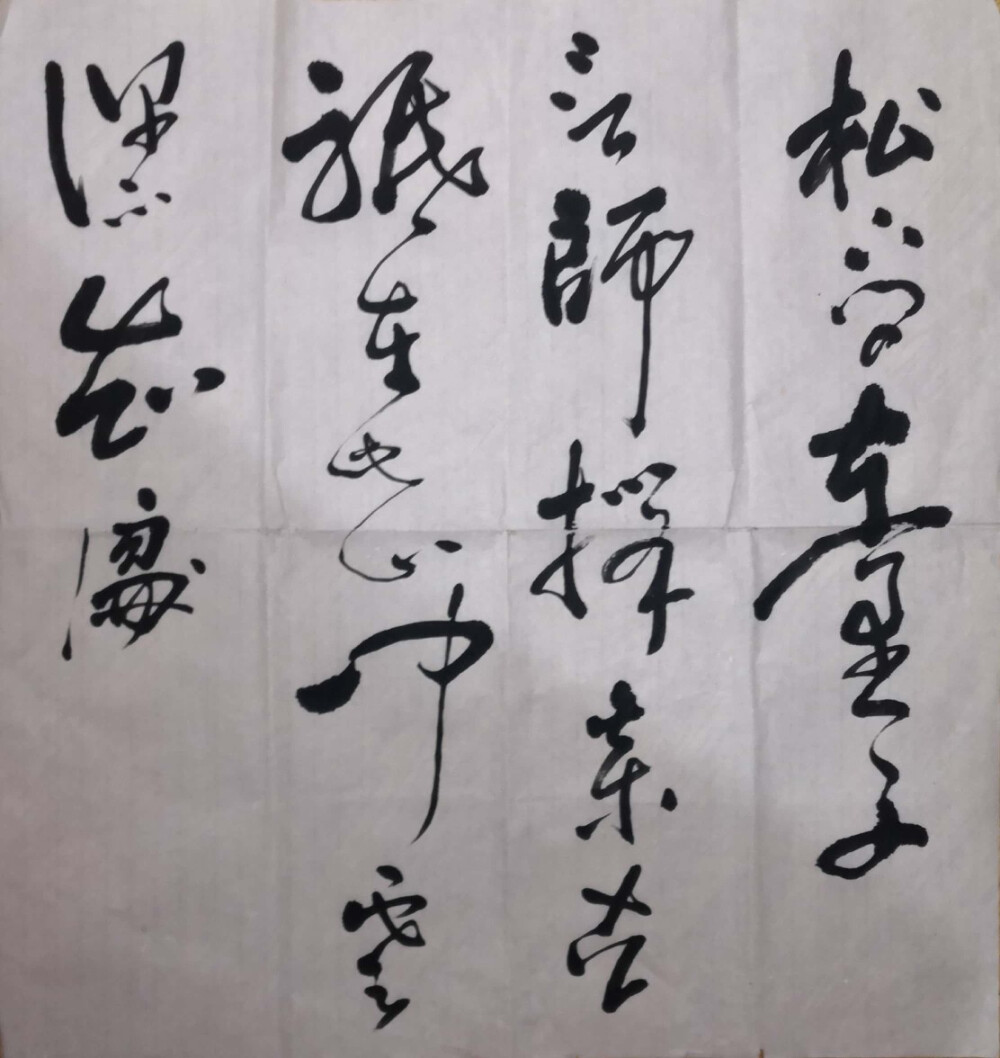 松下问童子
言師採药去
祇在此山中雲
深不知處